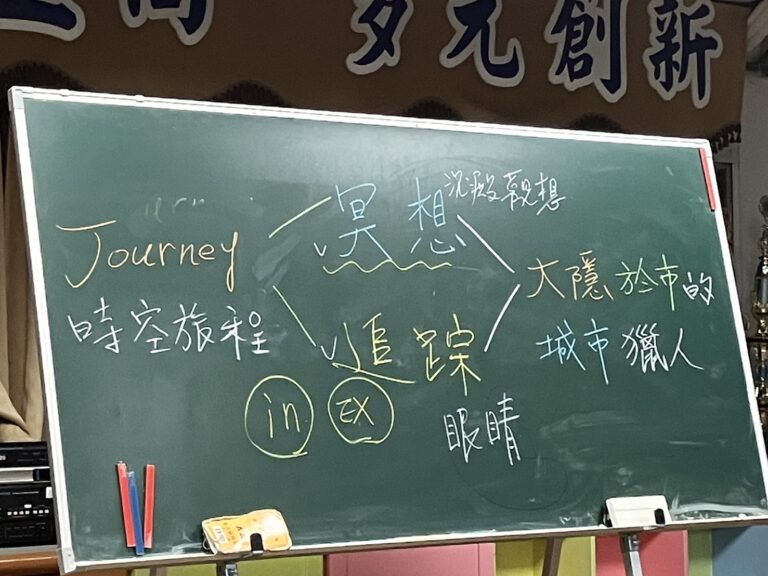 多元創新
沉澱 觀想
冥想
Journey
大隱於市的
時空旅程
城市獵人
追踪
in EX
眼睛